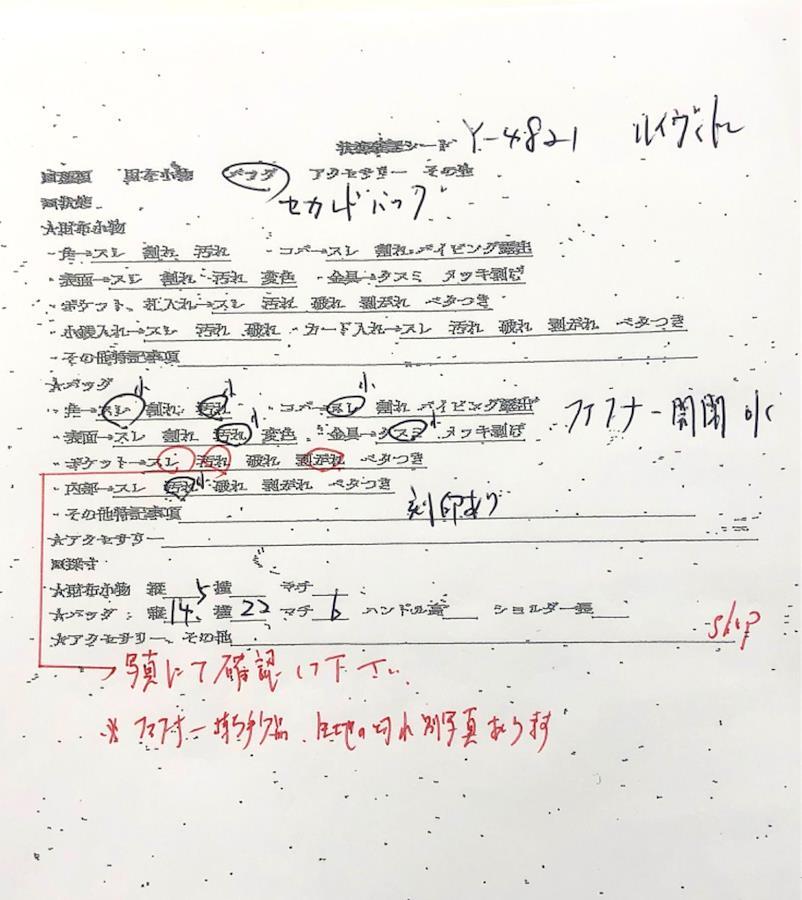 状態確認シート Y-4821 ルイヴィトン
財布小物 バッグ アクセサリー その他
セカンドバッグ
★財布小物
・角→スレ 割れ 汚れ ・コバ→スレ 割れ パイピング露出
・表面→スレ 割れ 汚れ 変色 ・金具→クスミ メッキ剥げ
・ポケット、札入れ→スレ 汚れ 破れ 剥がれ ベタつき
・小銭入れ→スレ 汚れ 破れ ・カード入れ→スレ 汚れ 破れ 剥がれ ベタつき
・その他特記事項
★バッグ
・角→スレ小 割れ 汚れ小 ・コバ→スレ小 割れ パイピング露出
・表面→スレ 割れ 汚れ小 変色 ・金具→クスミ小 メッキ剥げ
ファスナー開閉 OK
・ポケット→スレ 汚れ 破れ 剥がれ ベタつき
・内部→スレ 汚れ小 破れ 剥がれ ベタつき
・その他特記事項 刻印あり
★アクセサリー
■採寸
★財布小物 縦 横 マチ
★バッグ 縦 14.5 横 22 マチ 6 ハンドル高 ショルダー長
★アクセサリー、その他
写真にて確認して下さい
※ ファスナー持ち手欠品 生地の切れ 別写真あります